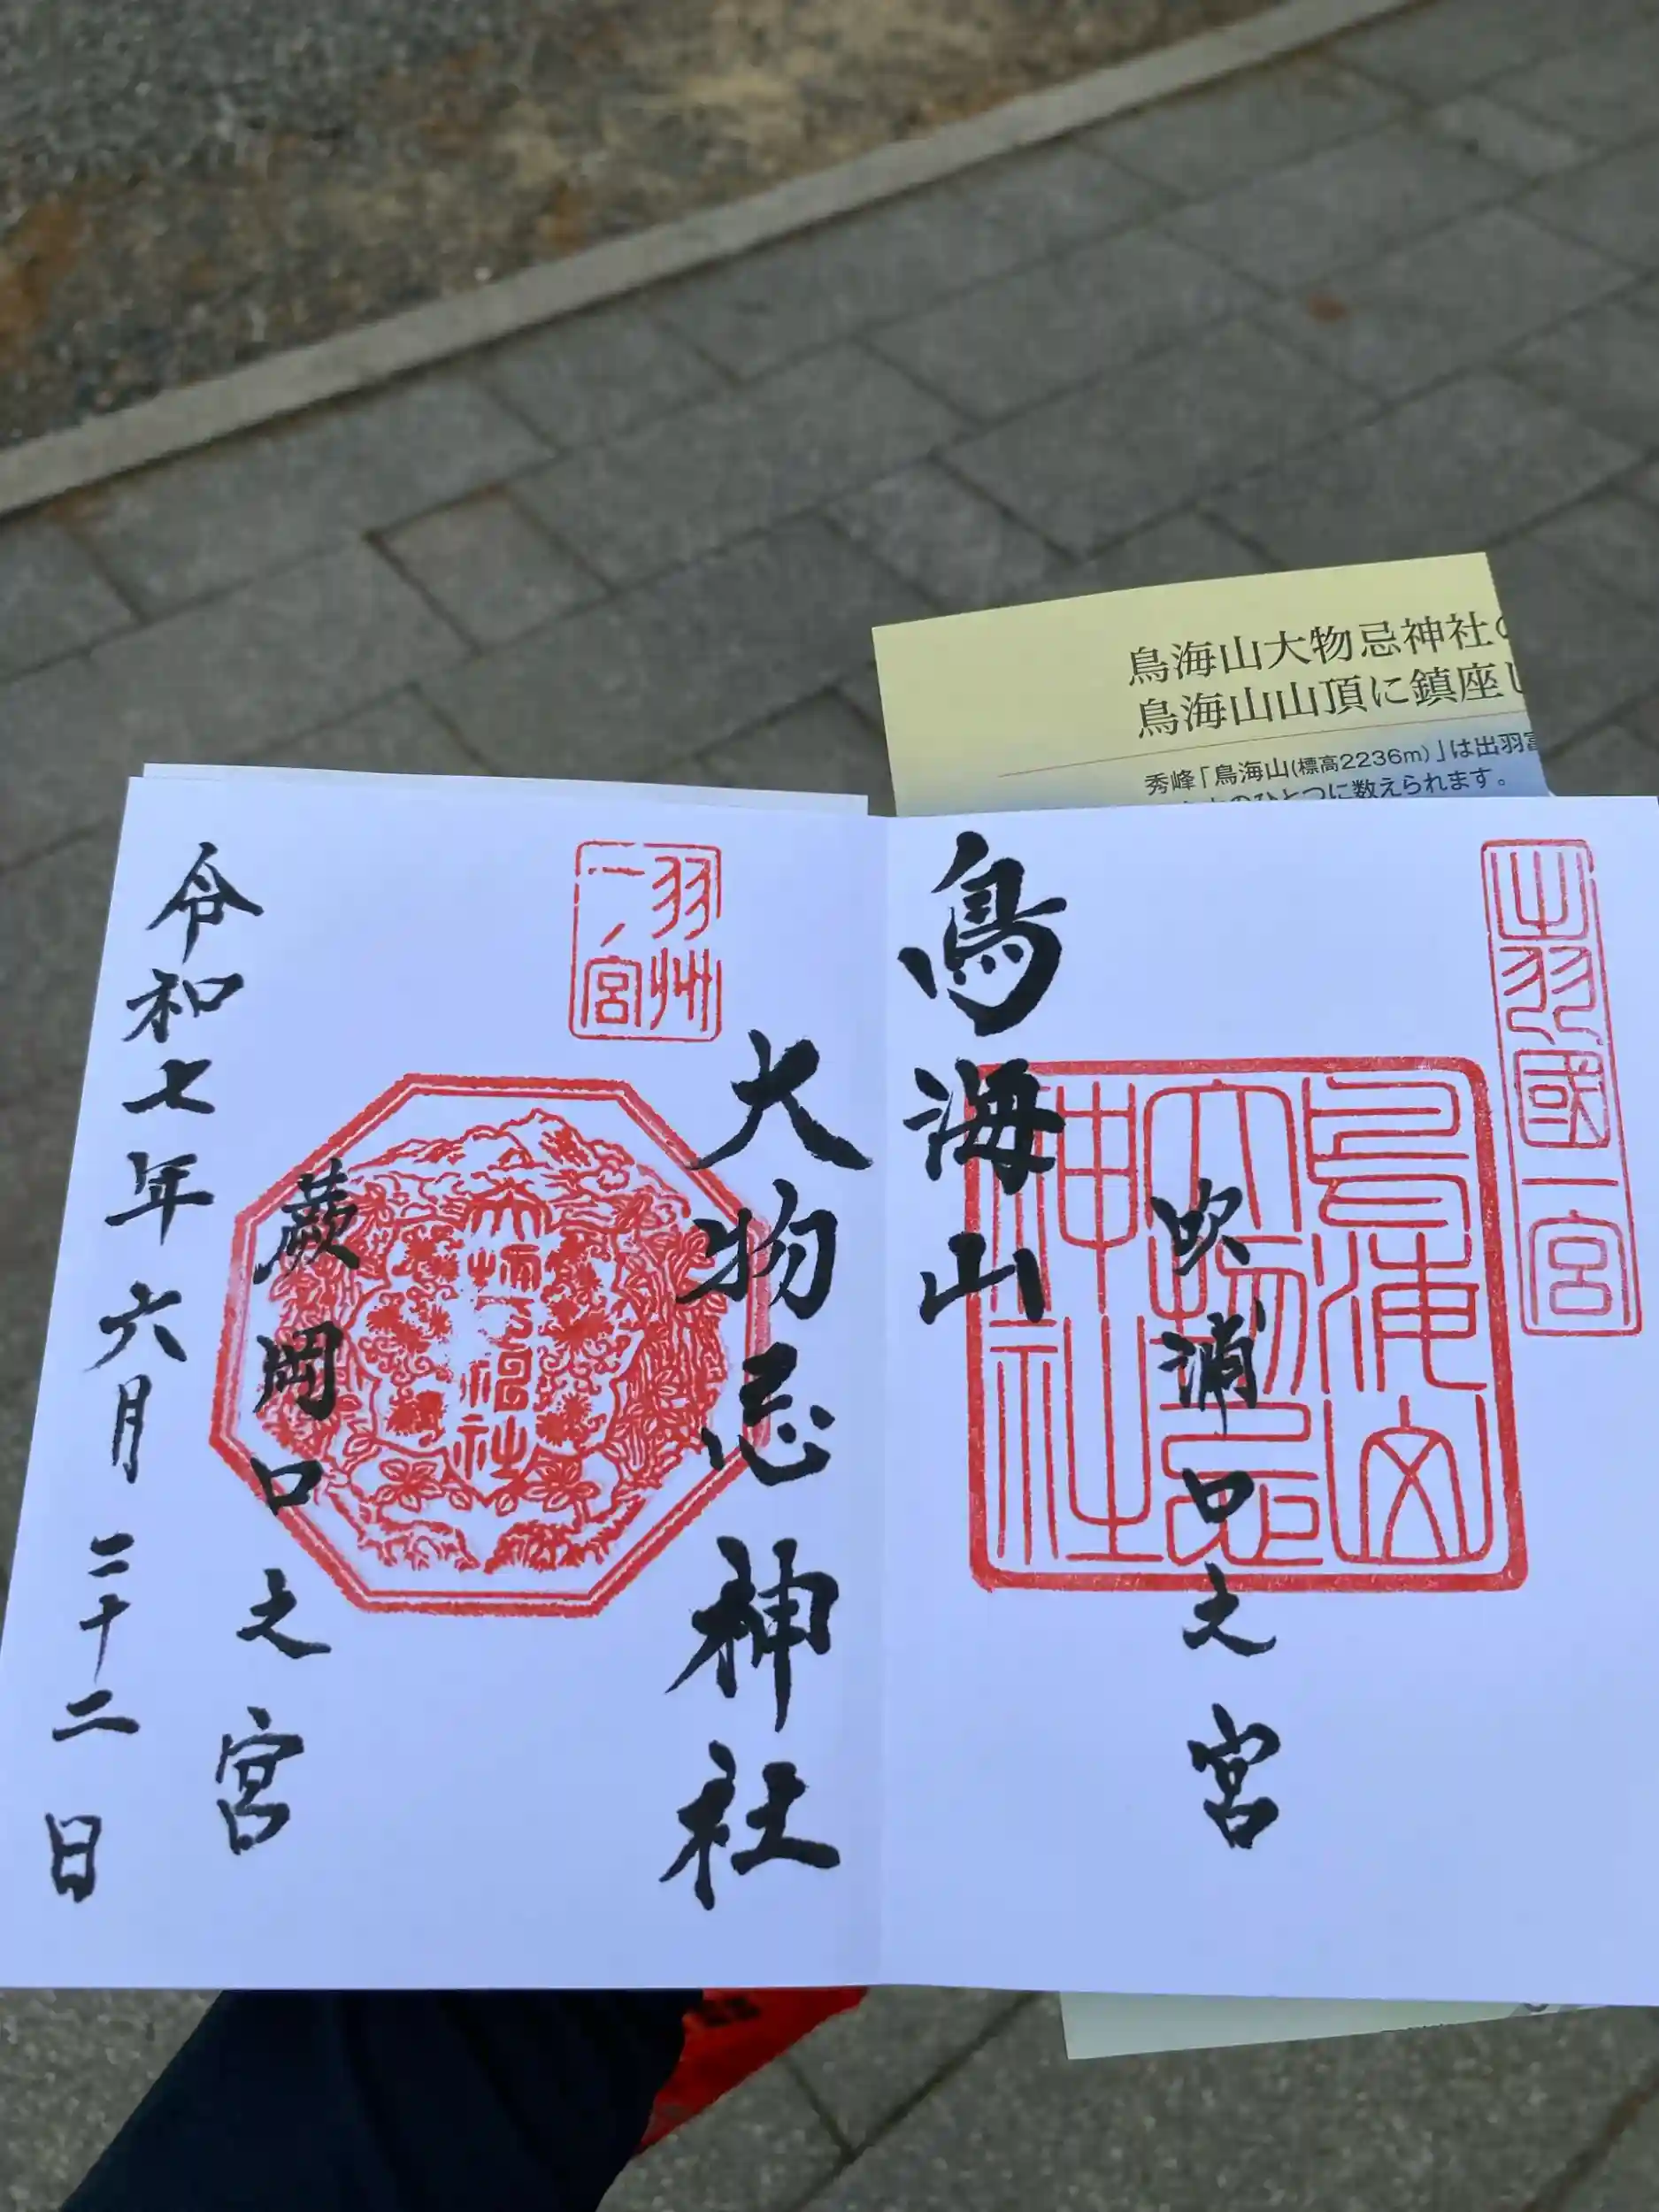 鳥海山大物忌神社の
鳥海山山頂に鎮座し
秀峰「鳥海山(標高2236m)」は出羽富
のひとつに数えられます。
出羽國一宮
鳥海山
大物忌
神社
吹浦口之宮
鳥海山
大物忌神社
羽州
一ノ宮
大物忌神社
蕨岡口之宮
令和七年六月二十二日